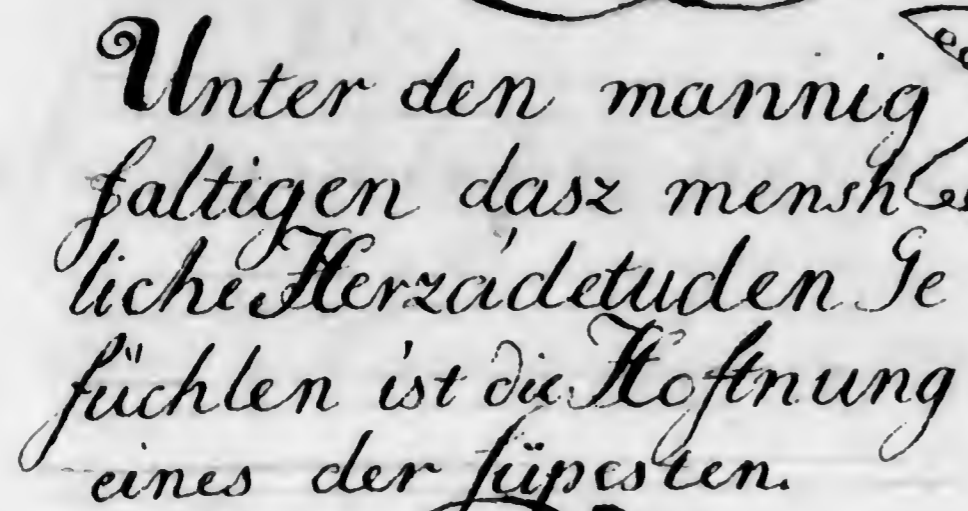 Unter den mannig
faltigen dasz mensh
liche Herz ádetuden Ge
füchlen ist die Hoftnung
eines der füpesten.